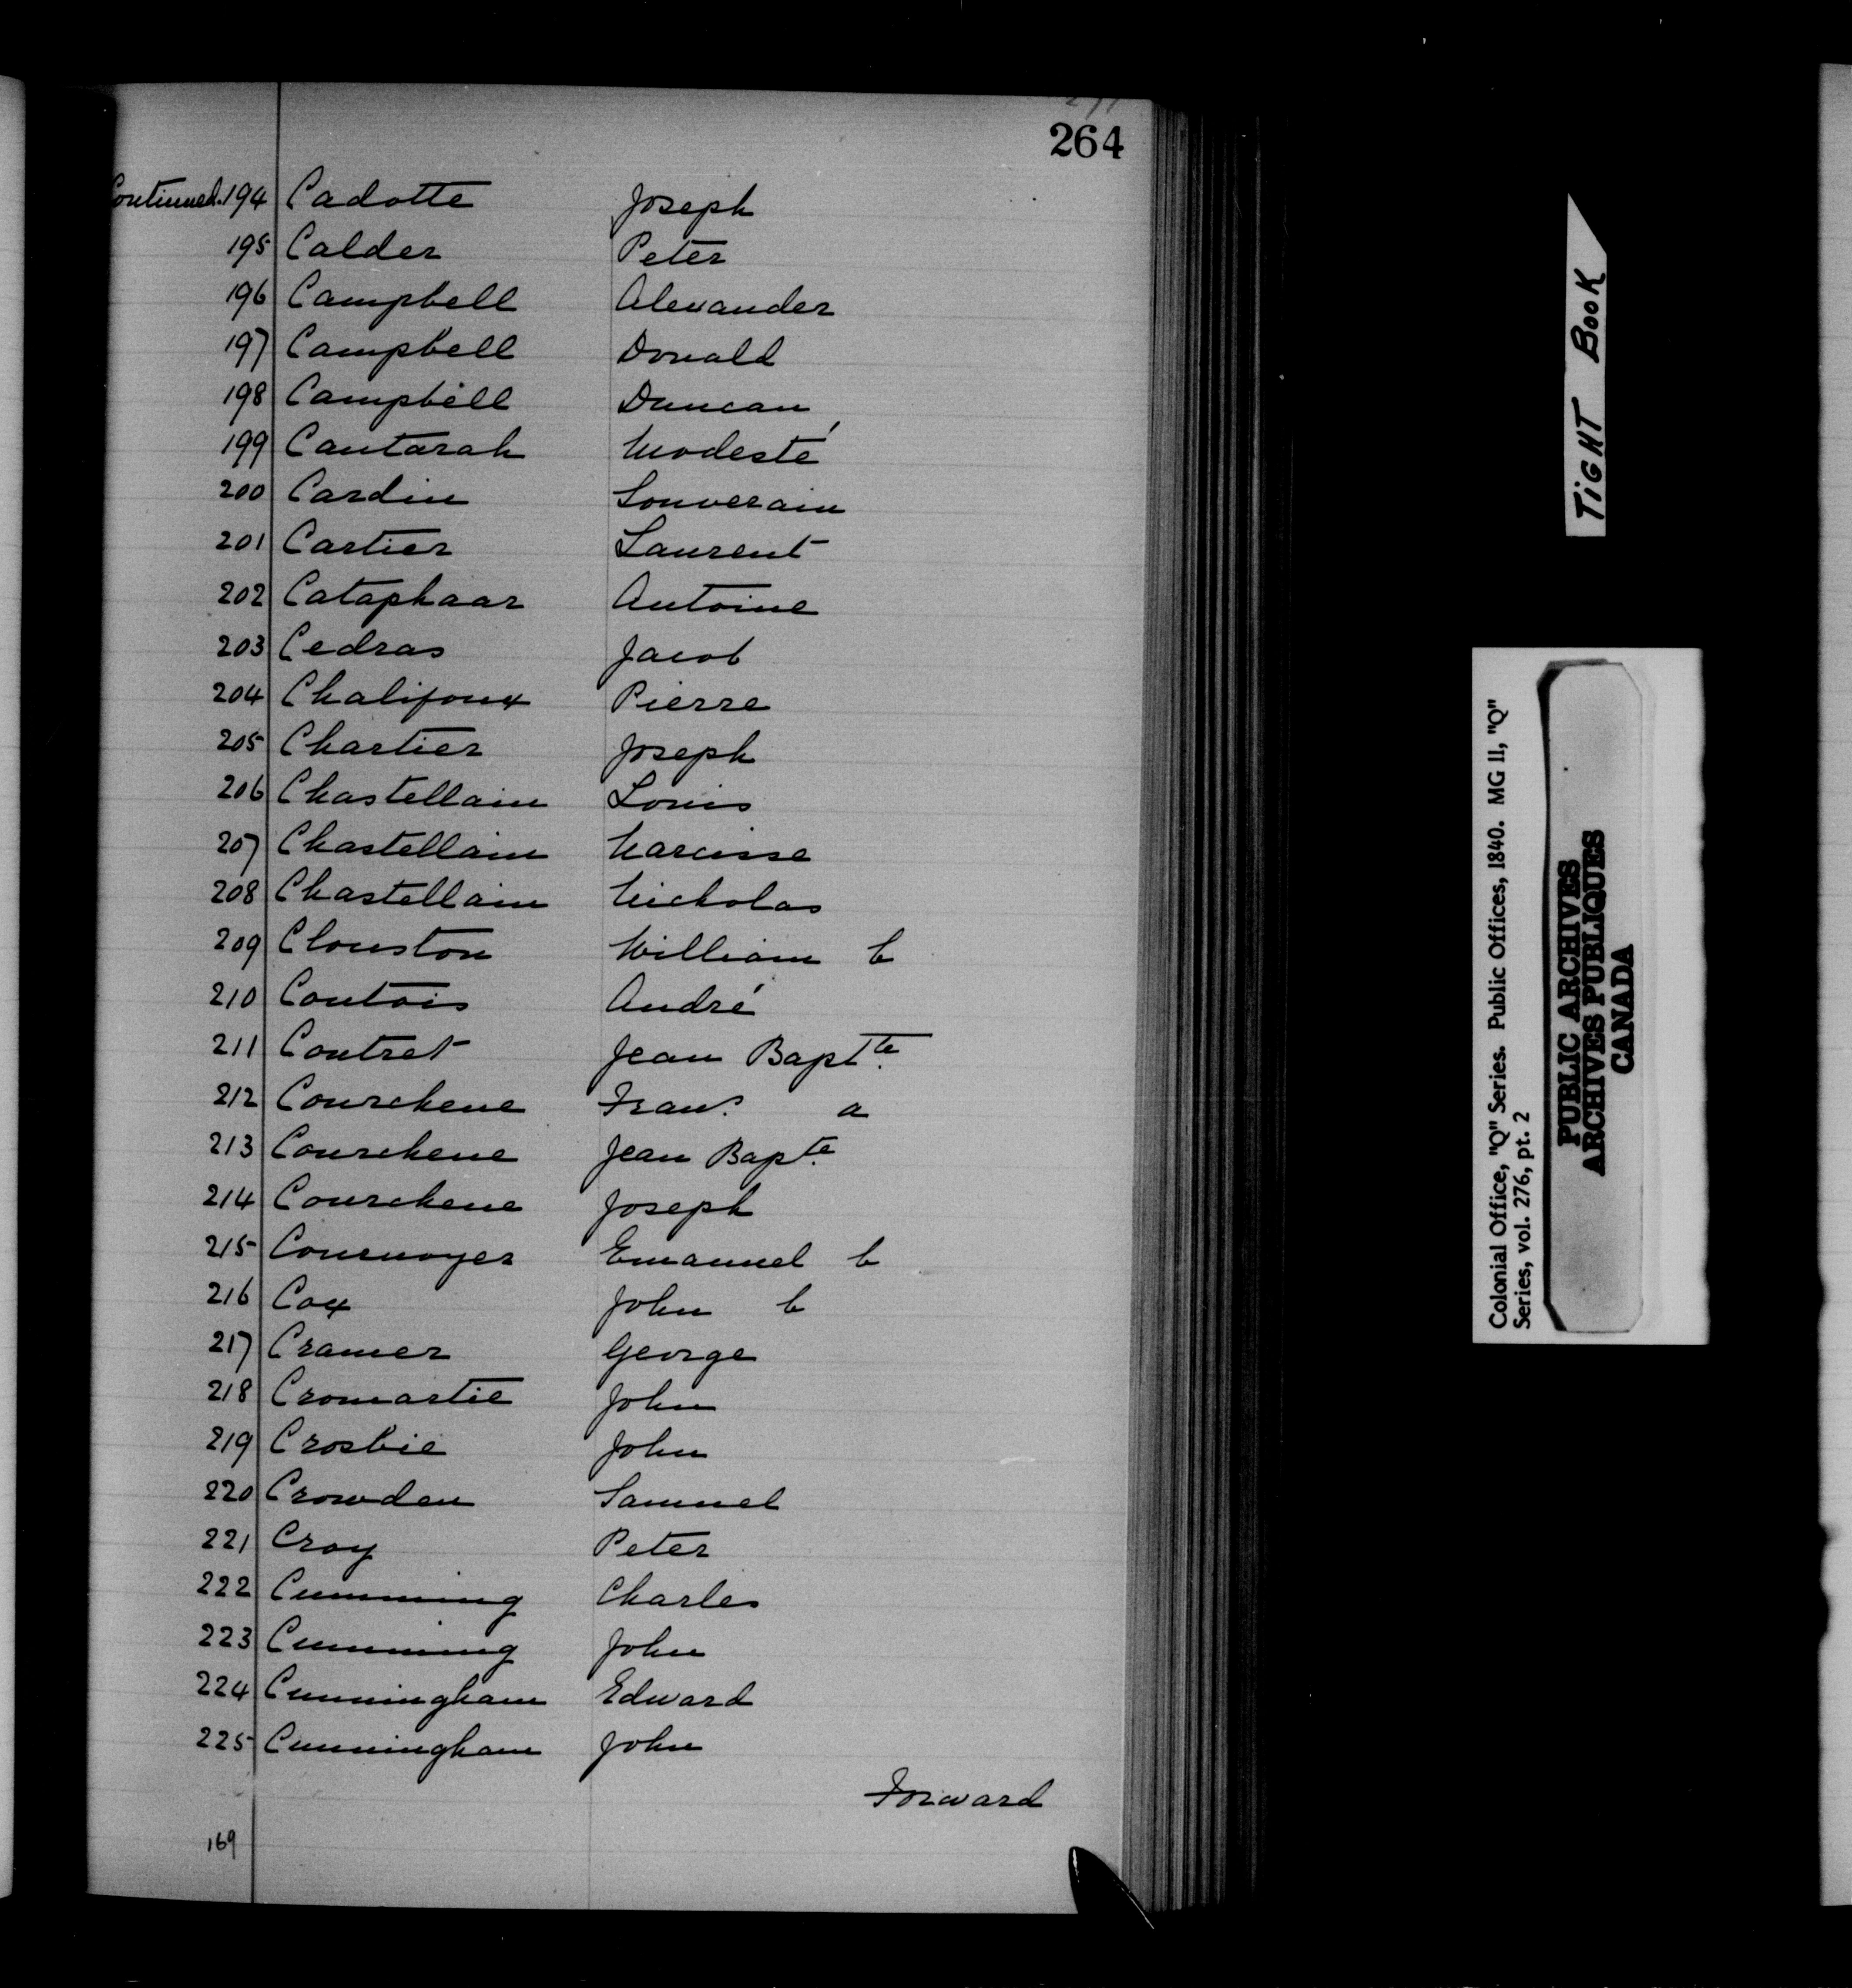 264
Continued. 194 Cadotte Joseph
195 Calder Peter
196 Campbell Alexander
197 Campbell Donald
198 Campbell Duncan
199 Cantarah Modesté
200 Cardin Souverain
201 Cartier Laurent
202 Cataphaar Antoine
203 Cedras Jacob
204 Chalifoux Pierre
205 Chartier Joseph
206 Chastellain Louis
207 Chastellain Narcisse
208 Chastellain Nicholas
209 Clouston William b
210 Coutois André
211 Coutret Jean Baptte.
212 Courchene Frans. a
213 Courchene Jean Bapte.
214 Courchene Joseph
215 Cournoyer Emanuel b
216 Cox John b
217 Cramer George
218 Cromartie John
219 Crosbie John
220 Crowden Samuel
221 Croy Peter
222 Cumming Charles
223 Cumming John
224 Cunningham Edward
225 Cunningham John
Forward
169
TIGHT BOOK
Colonial Office, "Q" Series. Public Offices, 1840. MG 11, "Q"
Series, vol. 276, pt. 2
PUBLIC ARCHIVES
ARCHIVES PUBLIQUES
CANADA